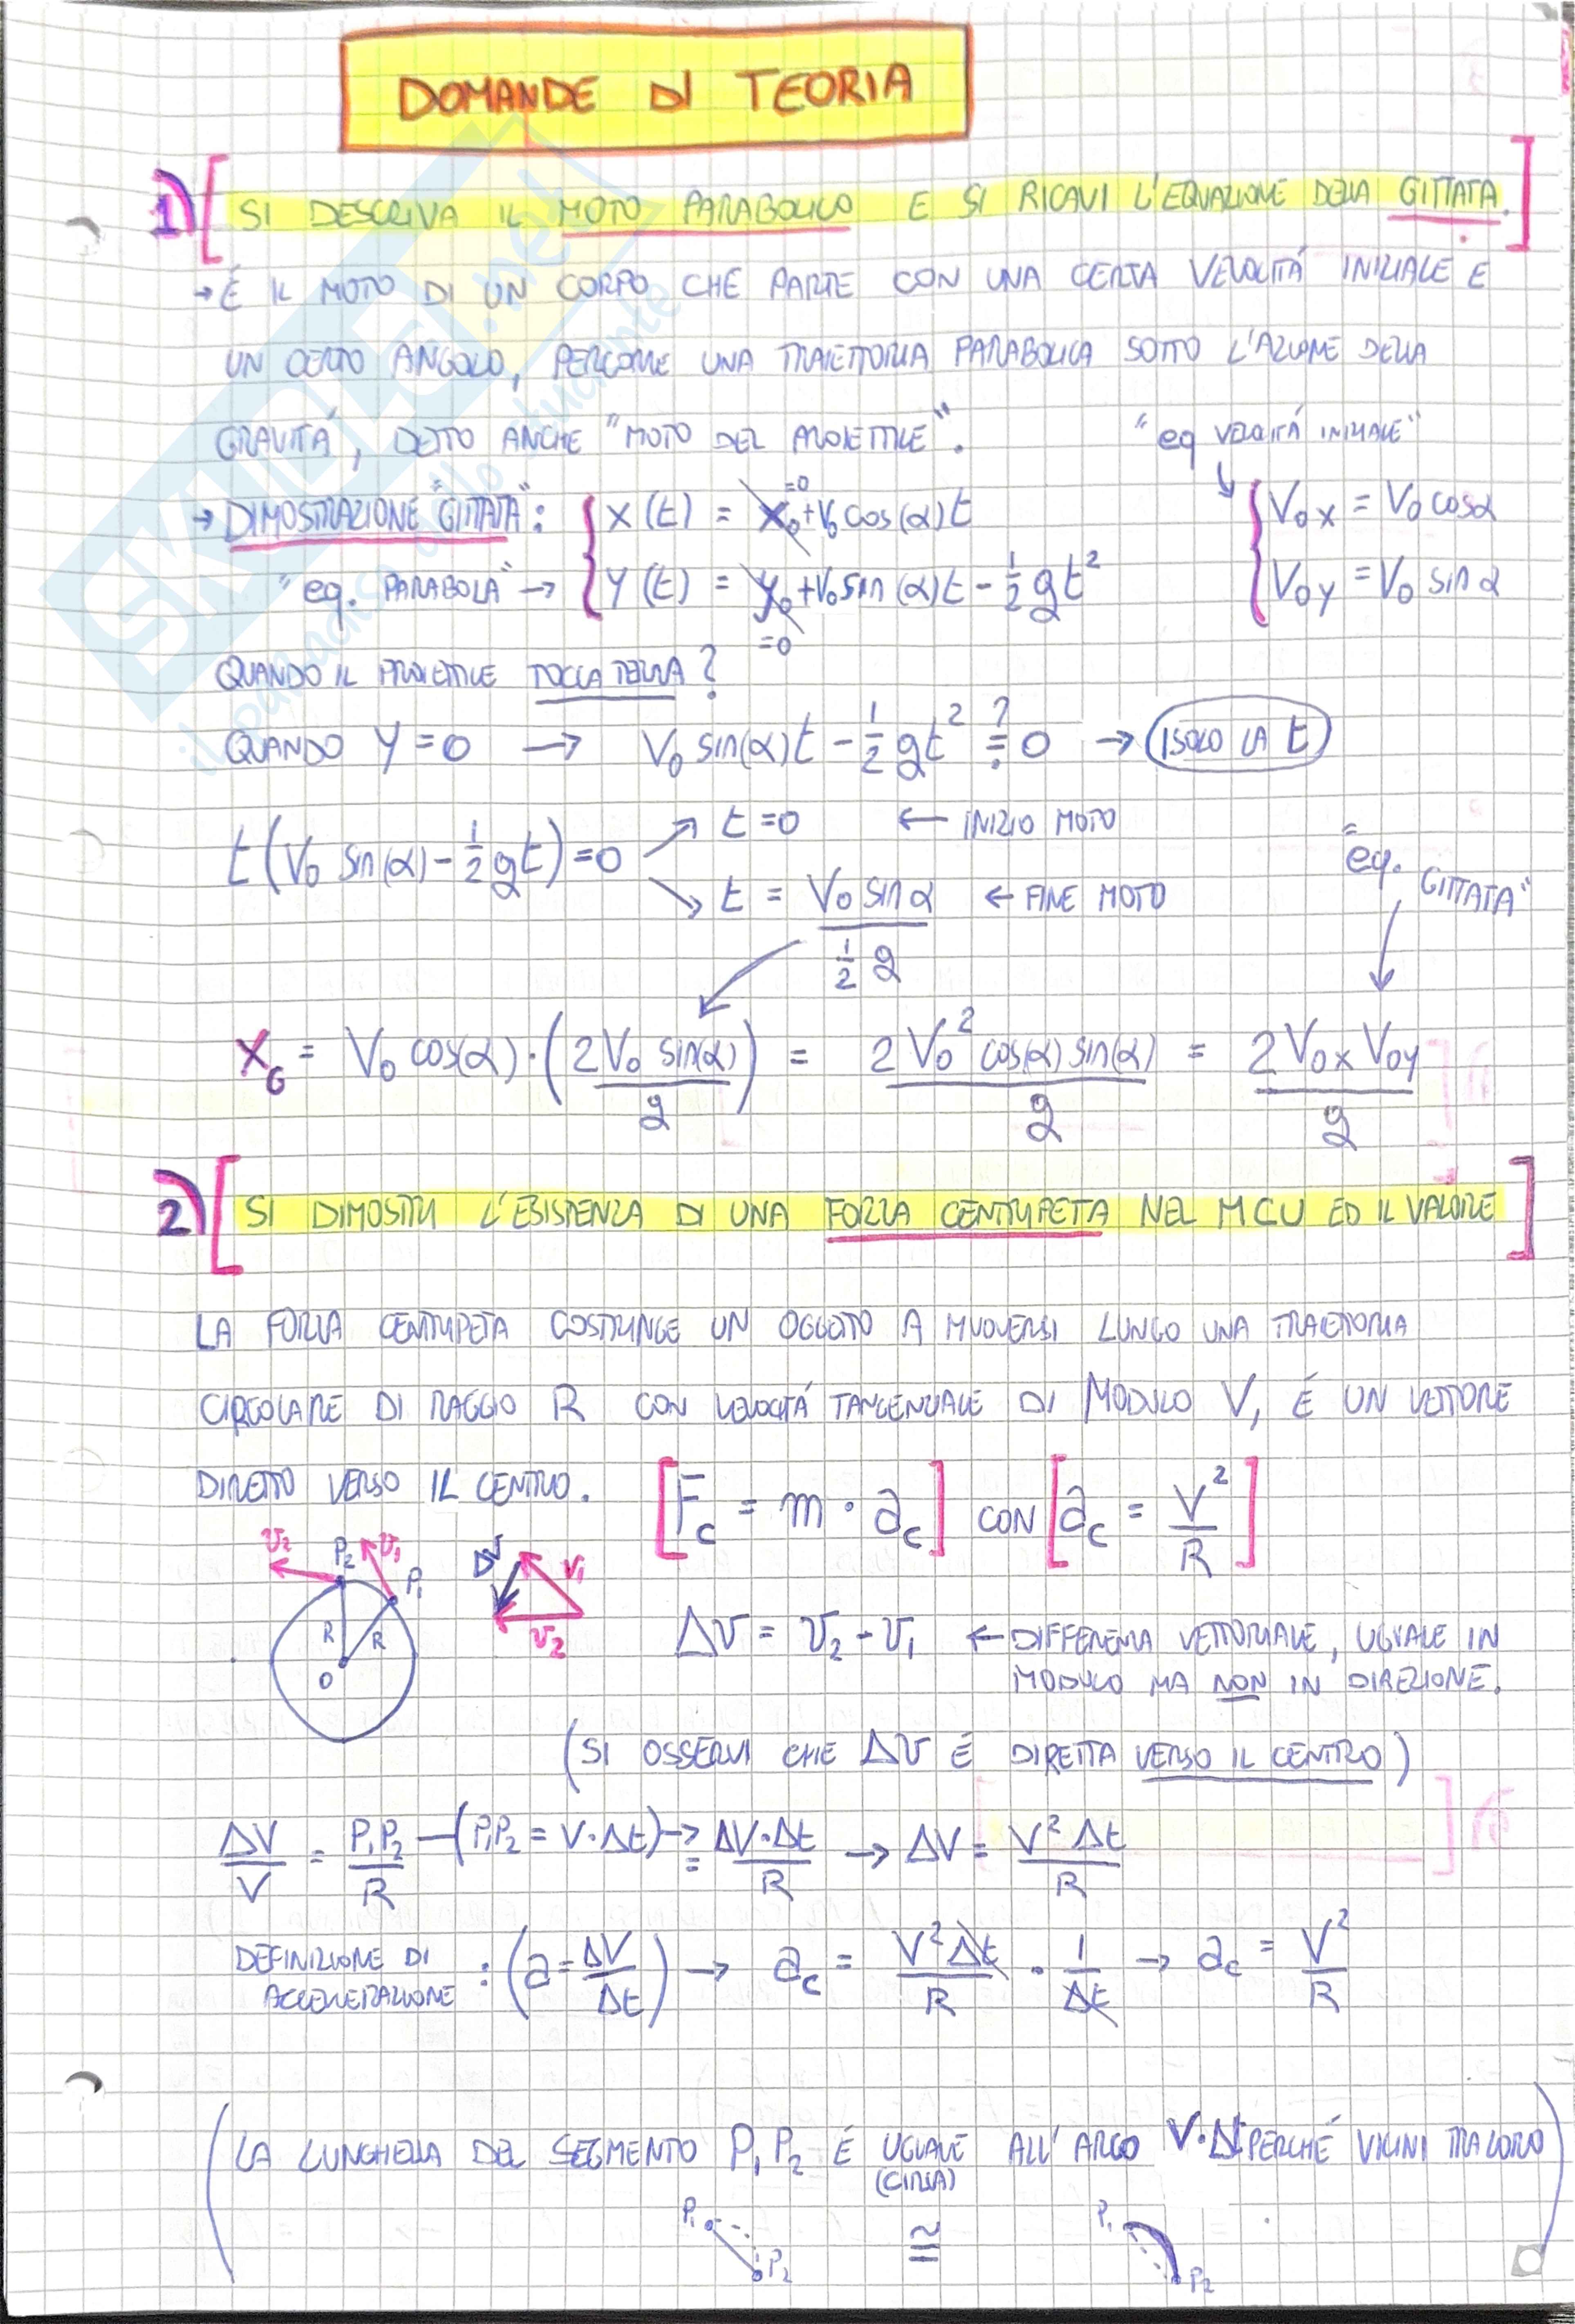 DOMANDE DI TEORIA
1) [SI DESCRIVA IL MOTO PARABOLICO E SI RICAVI L'EQUAZIONE DELLA GITTATA.]
→ É IL MOTO DI UN CORPO CHE PARTE CON UNA CERTA VELOCITÁ INIZIALE E
UN CERTO ANGOLO, PERCORRE UNA TRAIETTORIA PARABOLICA SOTTO L'AZIONE DELLA
GRAVITÁ, DETTO ANCHE "MOTO DEL PROIETTILE".
"eq VELOCITÁ INIZIALE"
→ DIMOSTRAZIONE "GITTATA": { x(t) = x₀ + V₀ cos(α)t
=0
{ V₀x = V₀ cosα
"eq. PARABOLA" → { y(t) = y₀ + V₀ sin(α)t - 1/2 gt²
=0
V₀y = V₀ sinα
QUANDO IL PROIETTILE TOCCA TERRA?
QUANDO Y = 0 → V₀ sin(α)t - 1/2 gt² ≟ 0 → ISOLO LA t
t(V₀ sin(α) - 1/2 gt) = 0 ↗ t = 0 ← INIZIO MOTO
↘ t = V₀ sinα / 1/2 g ← FINE MOTO
"eq. GITTATA"
X_G = V₀ cos(α) · (2V₀ sin(α) / g) = 2V₀² cos(α) sin(α) / g = 2V₀x V₀y / g
2) [SI DIMOSTRI L'ESISTENZA DI UNA FORZA CENTRIPETA NEL MCU ED IL VALORE]
LA FORZA CENTRIPETA COSTRINGE UN OGGETTO A MUOVERSI LUNGO UNA TRAIETTORIA
CIRCOLARE DI RAGGIO R CON VELOCITÁ TANGENZIALE DI MODULO V, É UN VETTORE
DIRETTO VERSO IL CENTRO. [F_c = m · a_c] CON [a_c = V²/R]
v₂ P₂ v₁ P₁
R R
O
Δv v₁
v₂
Δv = v₂ - v₁ ← DIFFERENZA VETTORIALE, UGUALE IN
MODULO MA NON IN DIREZIONE.
(SI OSSERVI CHE Δv É DIRETTA VERSO IL CENTRO)
ΔV/V = P₁P₂/R —(P₁P₂ = V·Δt)→ = ΔV·Δt/R → ΔV = V² Δt/R
DEFINIZIONE DI
ACCELERAZIONE : (a = ΔV/Δt) → a_c = V²Δt/R · 1/Δt → a_c = V²/R
(LA LUNGHEZZA DEL SEGMENTO P₁P₂ É UGUALE ALL'ARCO V·Δt PERCHÉ VICINI TRA LORO)
(CIRCA)
P₁ P₂ ≅ P₁ P₂
SKUOLA.net
il paradiso dello studente